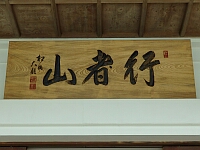 行者山